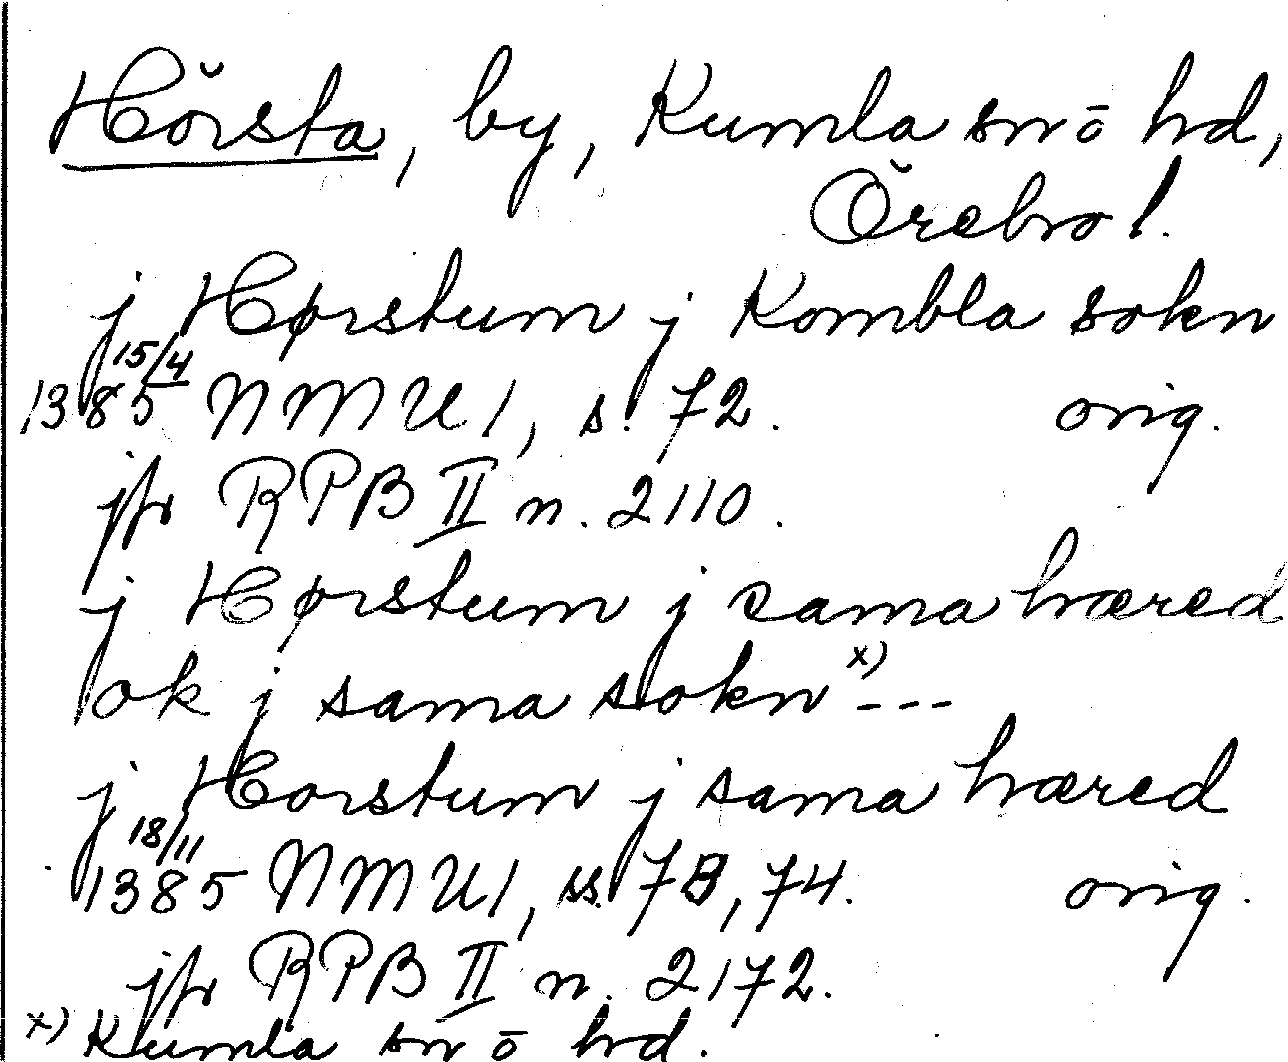 Hörsta, by, Kumla sn ō hd,
Örebro l.
j Hørstum j Kombla sokn
15/4
1385 NMU 1, s. 72. orig.
jfr RPB II n. 2110.
j Hørstum j sama hæred
ok j sama sokn x) ---
j Horstum j sama hæred
18/11
1385 NMU 1, ss. 73, 74. orig.
jfr RPB II n. 2172.
x) Kumla sn ō hd.